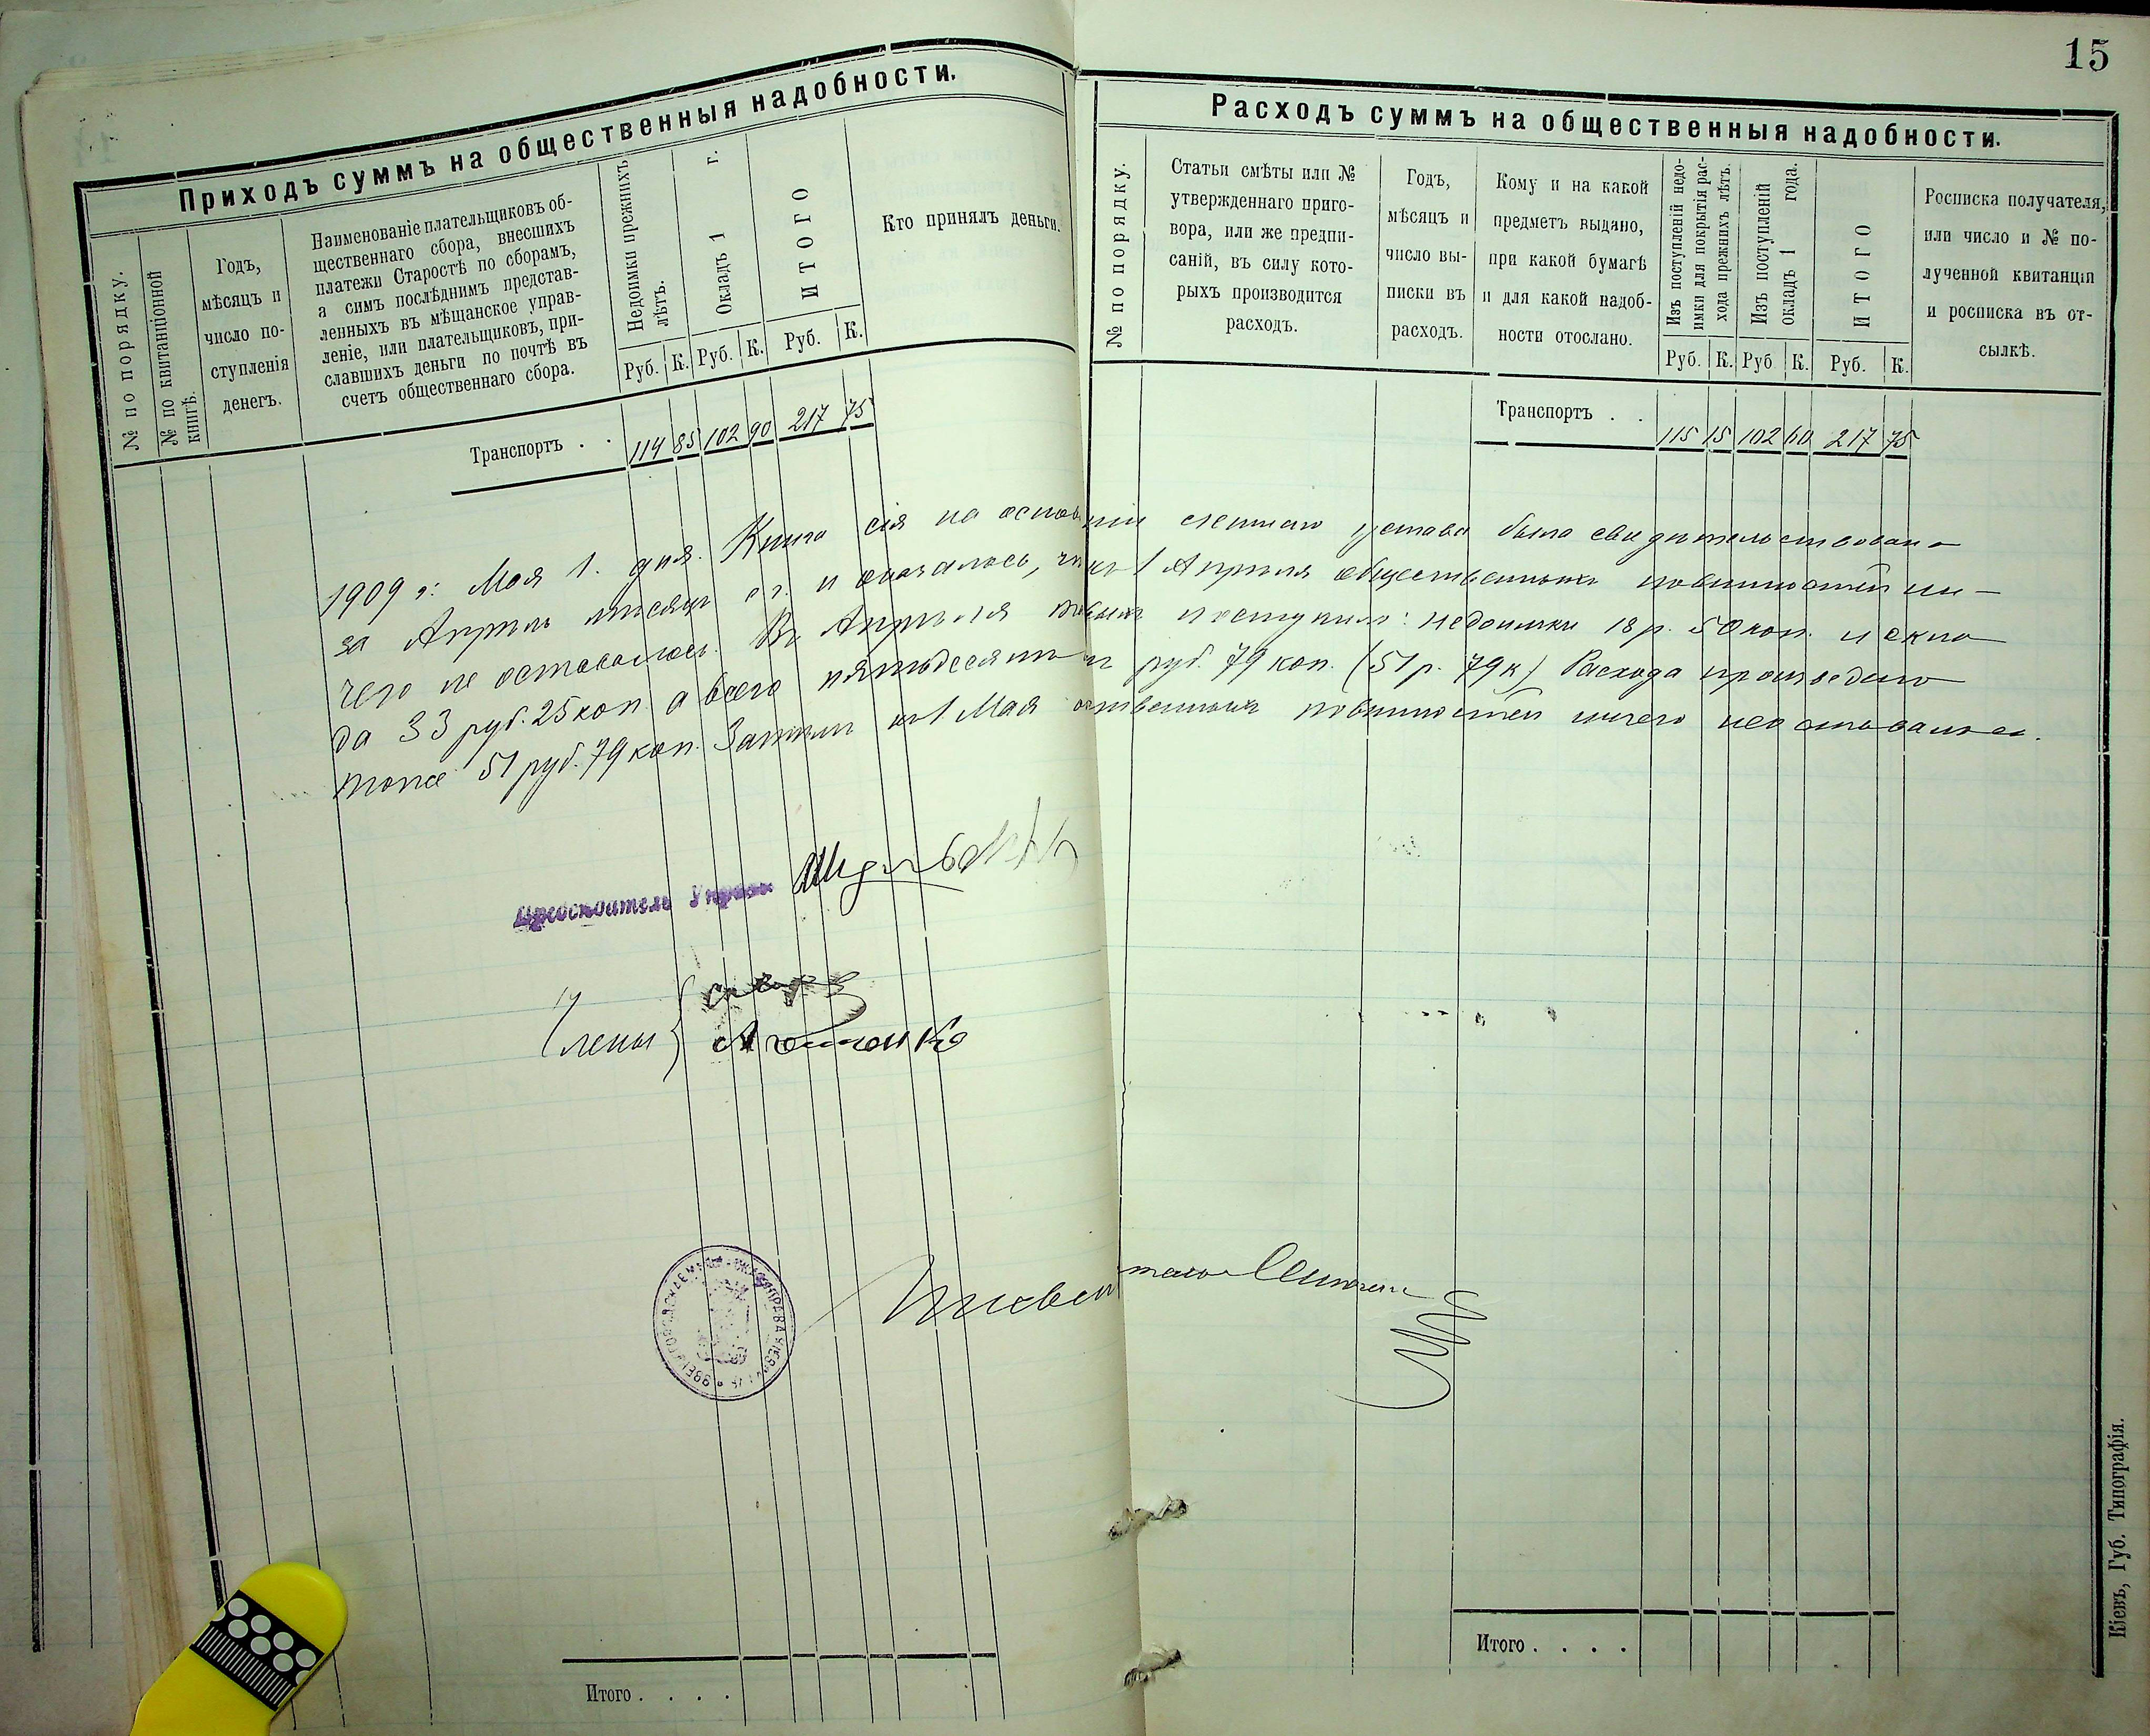 15
Приходъ суммъ на общественныя надобности.
№ по порядку.
№ по квитанціонной
книгѣ.
Годъ,
мѣсяцъ и
число по-
ступленія
денегъ.
Наименованіе плательщиковъ об-
щественнаго сбора, внесшихъ
платежи Старостѣ по сборамъ,
а симъ послѣднимъ представ-
ленныхъ въ мѣщанское управ-
леніе, или плательщиковъ, при-
славшихъ деньги по почтѣ въ
счетъ общественнаго сбора.
Недоимки прежнихъ
лѣтъ.
Окладъ 1 г.
ИТОГО
Руб. К. Руб. К. Руб. К.
Кто принялъ деньги.
Транспортъ . . 114 85 102 90 217 75
Расходъ суммъ на общественныя надобности.
№ по порядку.
Статьи смѣты или №
утвержденнаго приго-
вора, или же предпи-
саній, въ силу кото-
рыхъ производится
расходъ.
Годъ,
мѣсяцъ и
число вы-
писки въ
расходъ.
Кому и на какой
предметъ выдано,
при какой бумагѣ
и для какой надоб-
ности отослано.
Изъ поступленій недо-
имки для покрытія рас-
хода прежнихъ лѣтъ.
Изъ поступленій
окладъ 1 года.
ИТОГО
Руб. К. Руб К. Руб. К.
Росписка получателя,
или число и № по-
лученной квитанціи
и росписка въ от-
сылкѣ.
Транспортъ . . 115 15 102 60 217 75
1909 г: Мая 1. дня. Книга сія на основаніи счетнаго устава была свидѣтельствована
за Апрѣль мѣсяцъ с г. и оказалось, что къ 1 Апрѣля общественныхъ повинностей ни-
чего не оставалось. Въ Апрѣля поступило: недоимки 18 р. 50 коп. и окла
да 33 руб. 25 коп. а всего пятьдесятъ руб. 79 коп. (51 р. 79 к) Расхода произведено
тоже 51 руб. 79 коп. Затѣмъ къ 1 Мая повинностей ничего не оставалось.
Предсѣдатель Управы
Члены
Итого . . . .
Итого . . . .
Кіевъ, Губ. Типографія.